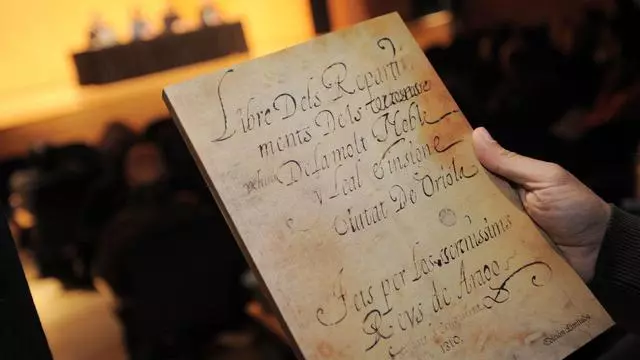 Libre Dels Reparti
ments Dels terrense
De la molt Noble
y Leal e insigne
ciutat De Oriola
Fets per los serenissims
Reys de Arago
1310.
Edición Limitada